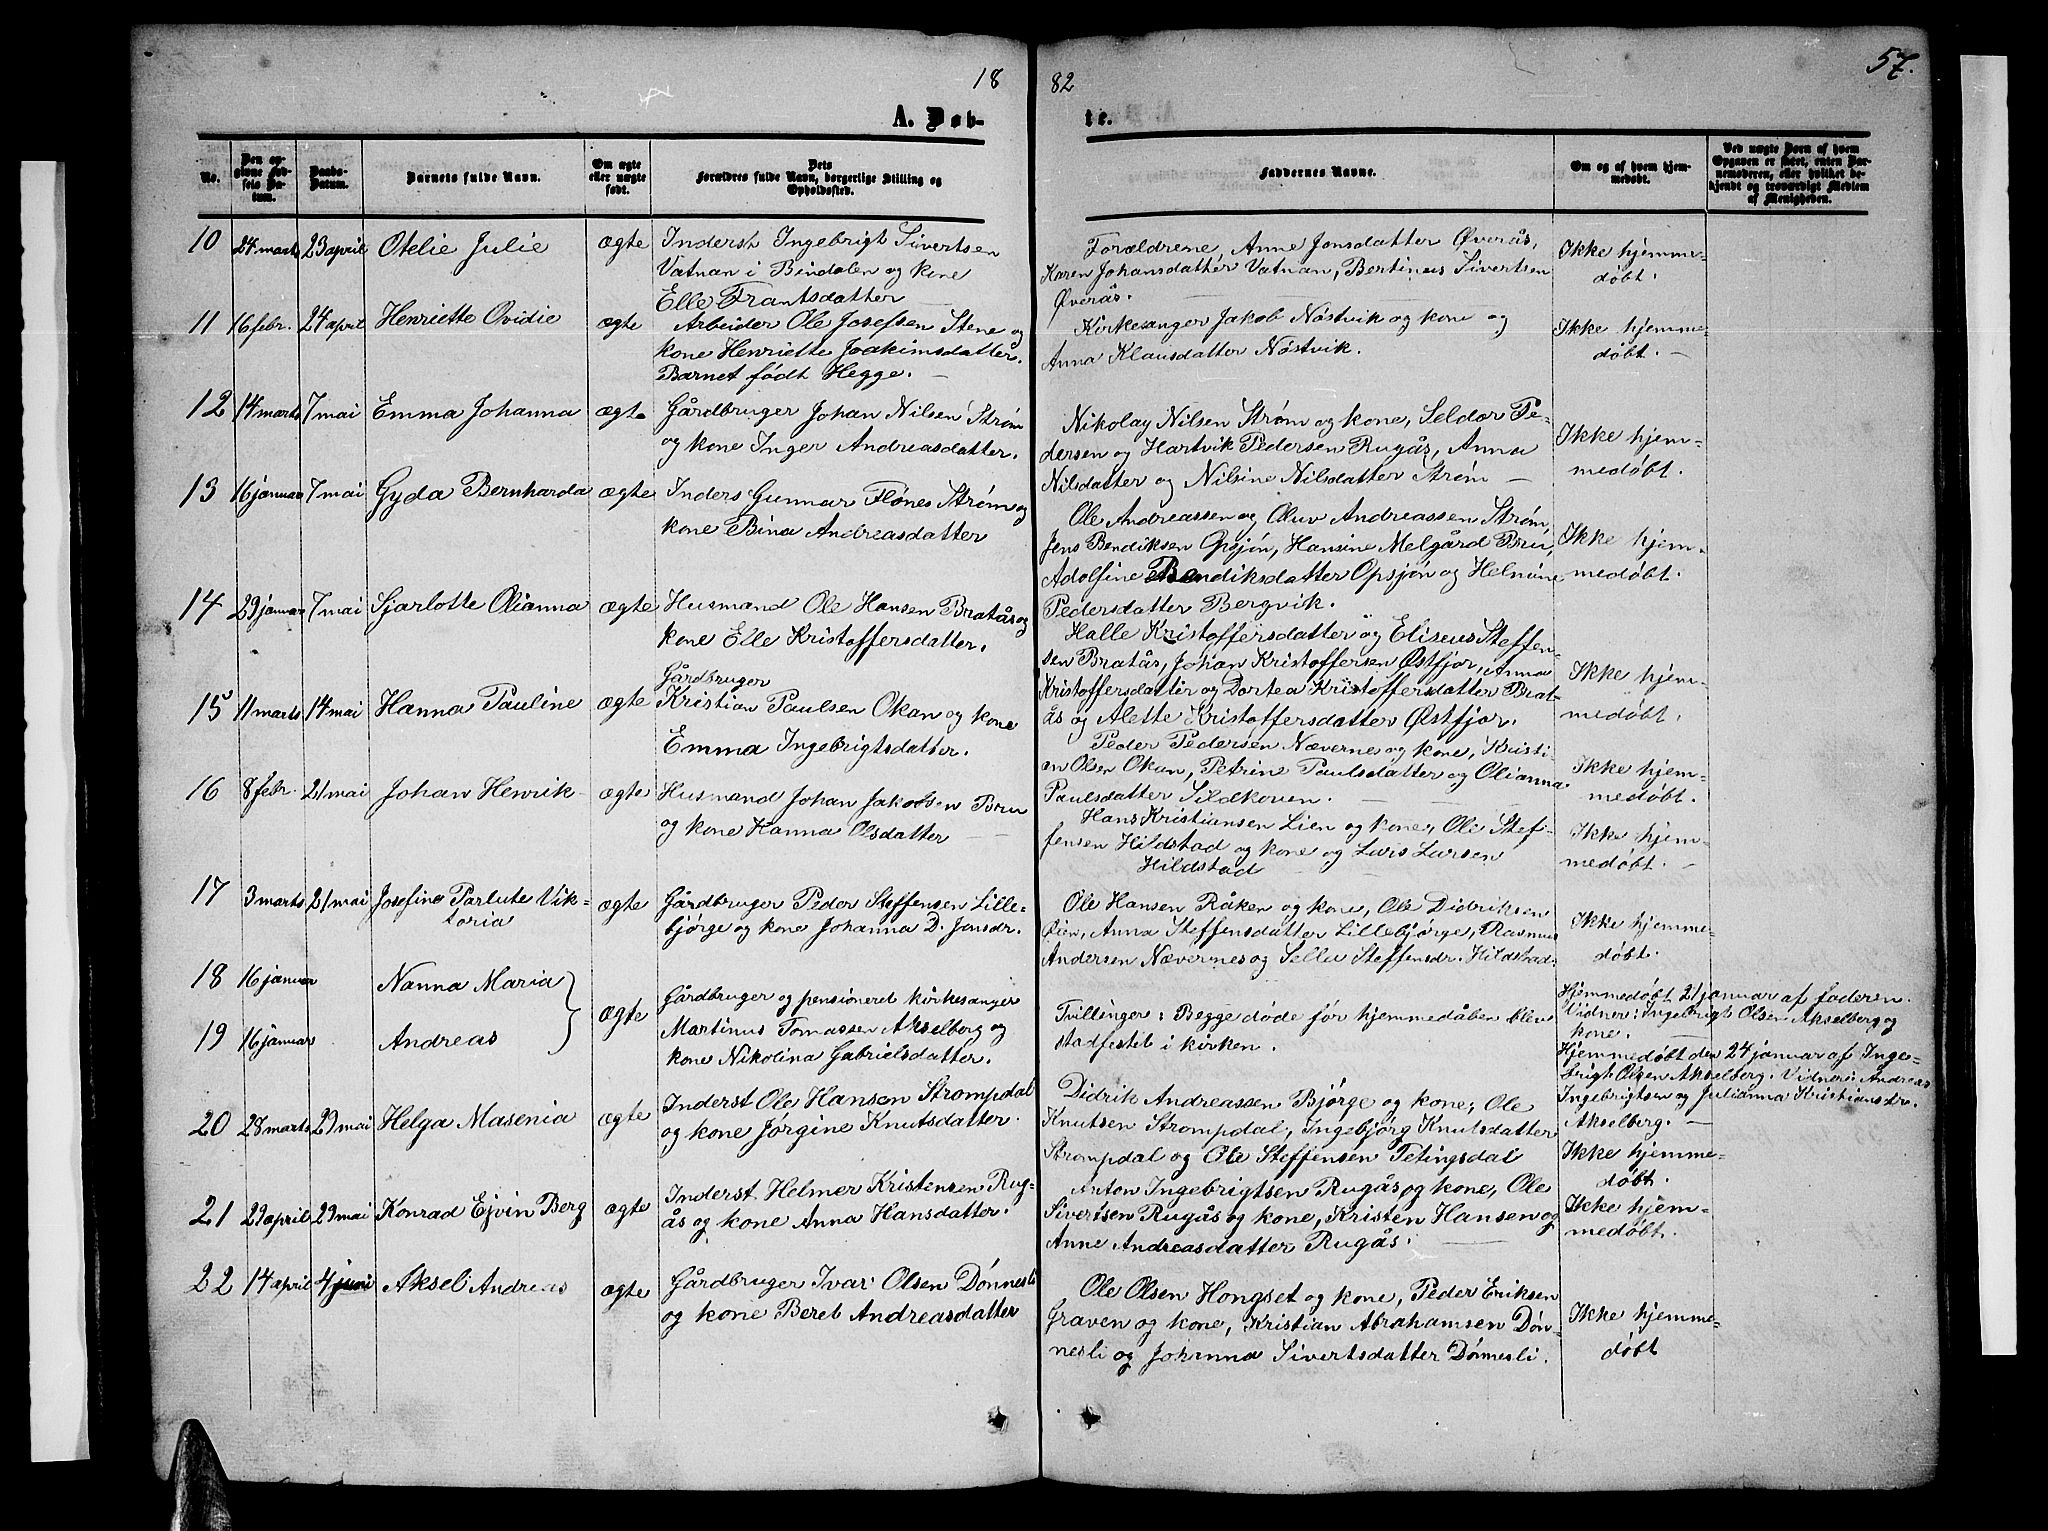 18
82
57.
A. Døb-
te.
No.
Den op-
givne Fød-
sels Da-
tum.
Daabs-
Datum.
Barnets fulde Navn.
Om ægte
eller uægte
født.
Dets
Forældres fulde Navn, borgerlige Stilling og
Opholdssted.
Faddernes Navne.
Om og af hvem hjem-
medøbt.
Ved uægte Børn af hvem
Opgaven er skeet, enten Bar-
nemoderen, eller hvilket be-
kjendt og troværdigt Medlem
af Menigheden.
10 24 marts 23 april Otelie Julie ægte
Inderst Ingebrigt Sivertsen
Vatnan i Bindalen og kone
Elle Frantsdatter
Forældrene, Anne Jonsdatter Øverås,
Karen Johansdatter Vatnan, Bertinus Sivertsen
Øverås.
Ikke hjemme-
døbt.
11 16 febr. 24 april Henriette Ovidie ægte
Arbeider Ole Josefsen Stene og
kone Henriette Joakimsdatter.
Barnet født Hegge.
Kirkesanger Jakob Nöstvik og kone og
Anna Klausdatter Nöstvik.
Ikke hjemme-
døbt.
12 14 marts 7 mai Emma Johanna ægte
Gårdbruger Johan Nilsen Strøm
og kone Inger Andreasdatter.
Nikolay Nilsen Strøm og kone, Seldor Pe-
dersen og Hartvik Pedersen Rugås, Anna
Nilsdatter og Nilsine Nilsdatter Strøm
Ikke hjem-
medøbt.
13 16 januar 7 mai Gyda Bernharda ægte
Inders Gunnar Flönes Strøm og
kone Bina Andreasdatter
Ole Andreassen og Oluv Andreassen Strøm,
Jens Bendiksen Opsjön, Hansine Melgård Bru,
Adolfine Bendiksdatter Opsjön og Helmine
Pedersdatter Bergvik.
Ikke hjem-
medøbt.
14 29 januar 7 mai Sjarlotte Olianna ægte
Husmand Ole Hansen Bratås og
kone Elle Kristoffersdatter.
Halle Kristoffersdatter og Eliseus Steffen-
sen Bratås, Johan Kristoffersen Østfjor, Anna
Kristoffersdatter og Dortea Kristoffersdatter Brat-
ås og Alette Kristoffersdatter Østfjor.
Ikke hjem-
medøbt.
15 11 marts 14 mai Hanna Pauline ægte
Gårdbruger
Kristian Paulsen Okan og kone
Emma Ingebrigtsdatter.
Peder Pedersen Næverne og kone, Kristi-
an Olsen Okan, Petrine Paulsdatter og Olianna
Paulsdatter Sildkoven.
Ikke hjem-
medøbt.
16 8 febr. 21 mai Johan Henrik ægte
Husmand Johan Jakobsen Bru
og kone Hanna Olsdatter
Hans Kristiansen Lien og kone, Ole Stef-
fensen Hildstad og kone og Lars Larsen
Hildstad
Ikke hjem-
medøbt.
17 3 marts 21 mai Josefine Parlute Vik-
toria
ægte
Gårdbruger Peder Steffensen Lille-
bjørge og kone Johanna D. Jonsdr.
Ole Hansen Råken og kone, Ole Didriksen
Øien, Anna Steffensdatter Lillebjørge, Rasmus
Andersen Nævernes og Sella Steffensdr. Hildstad.
Ikke hjemme-
døbt.
18 16 januar Nanna Maria
19 16 januar Andreas
ægte
Gårdbruger og pensioneret kirkesanger
Martinus Tomassen Akselberg og
kone Nikolina Gabrielsdatter.
Tvillinger: Begge døde før hjemmedåben blev
stadfestet i kirken.
Hjemmedøbt 21 januar af faderen.
Vidner: Ingebrigt Olsen Akselberg og
kone.
Hjemmedøbt den 24 januar af Inge-
brigt Olsen Akselberg. Vidner: Andreas
Ingebrigtsen og Julianna Kristiansdr.
Akselberg.
20 28 marts 29 mai Helga Masenia ægte
Inderst Ole Hansen Strompdal
og kone Jørgine Knutsdatter.
Didrik Andreassen Bjørge og kone, Ole
Knutsen Strompdal, Ingebjørg Knutsdatter
Strompdal og Ole Steffensen Tetingsdal
Ikke hjemme-
døbt.
21 29 april 29 mai Konrad Ejvin Berg ægte
Inderst Helmer Kristensen Rug-
ås og kone Anna Hansdatter.
Anton Ingebrigtsen Rugås og kone, Ole
Sivertsen Rugås og kone, Kristen Hansen og
Anne Andreasdatter Rugås.
Ikke hjem-
medøbt.
22 14 april 4 juni Aksel Andreas ægte
Gårdbruger Ivar Olsen Dönnesli
og kone Beret Andreasdatter
Ole Olsen Hongset og kone, Peder Eriksen
Graven og kone, Kristian Abrahamsen Dön-
nesli og Johanna Sivertsdatter Dönnesli.
Ikke hjemme-
døbt